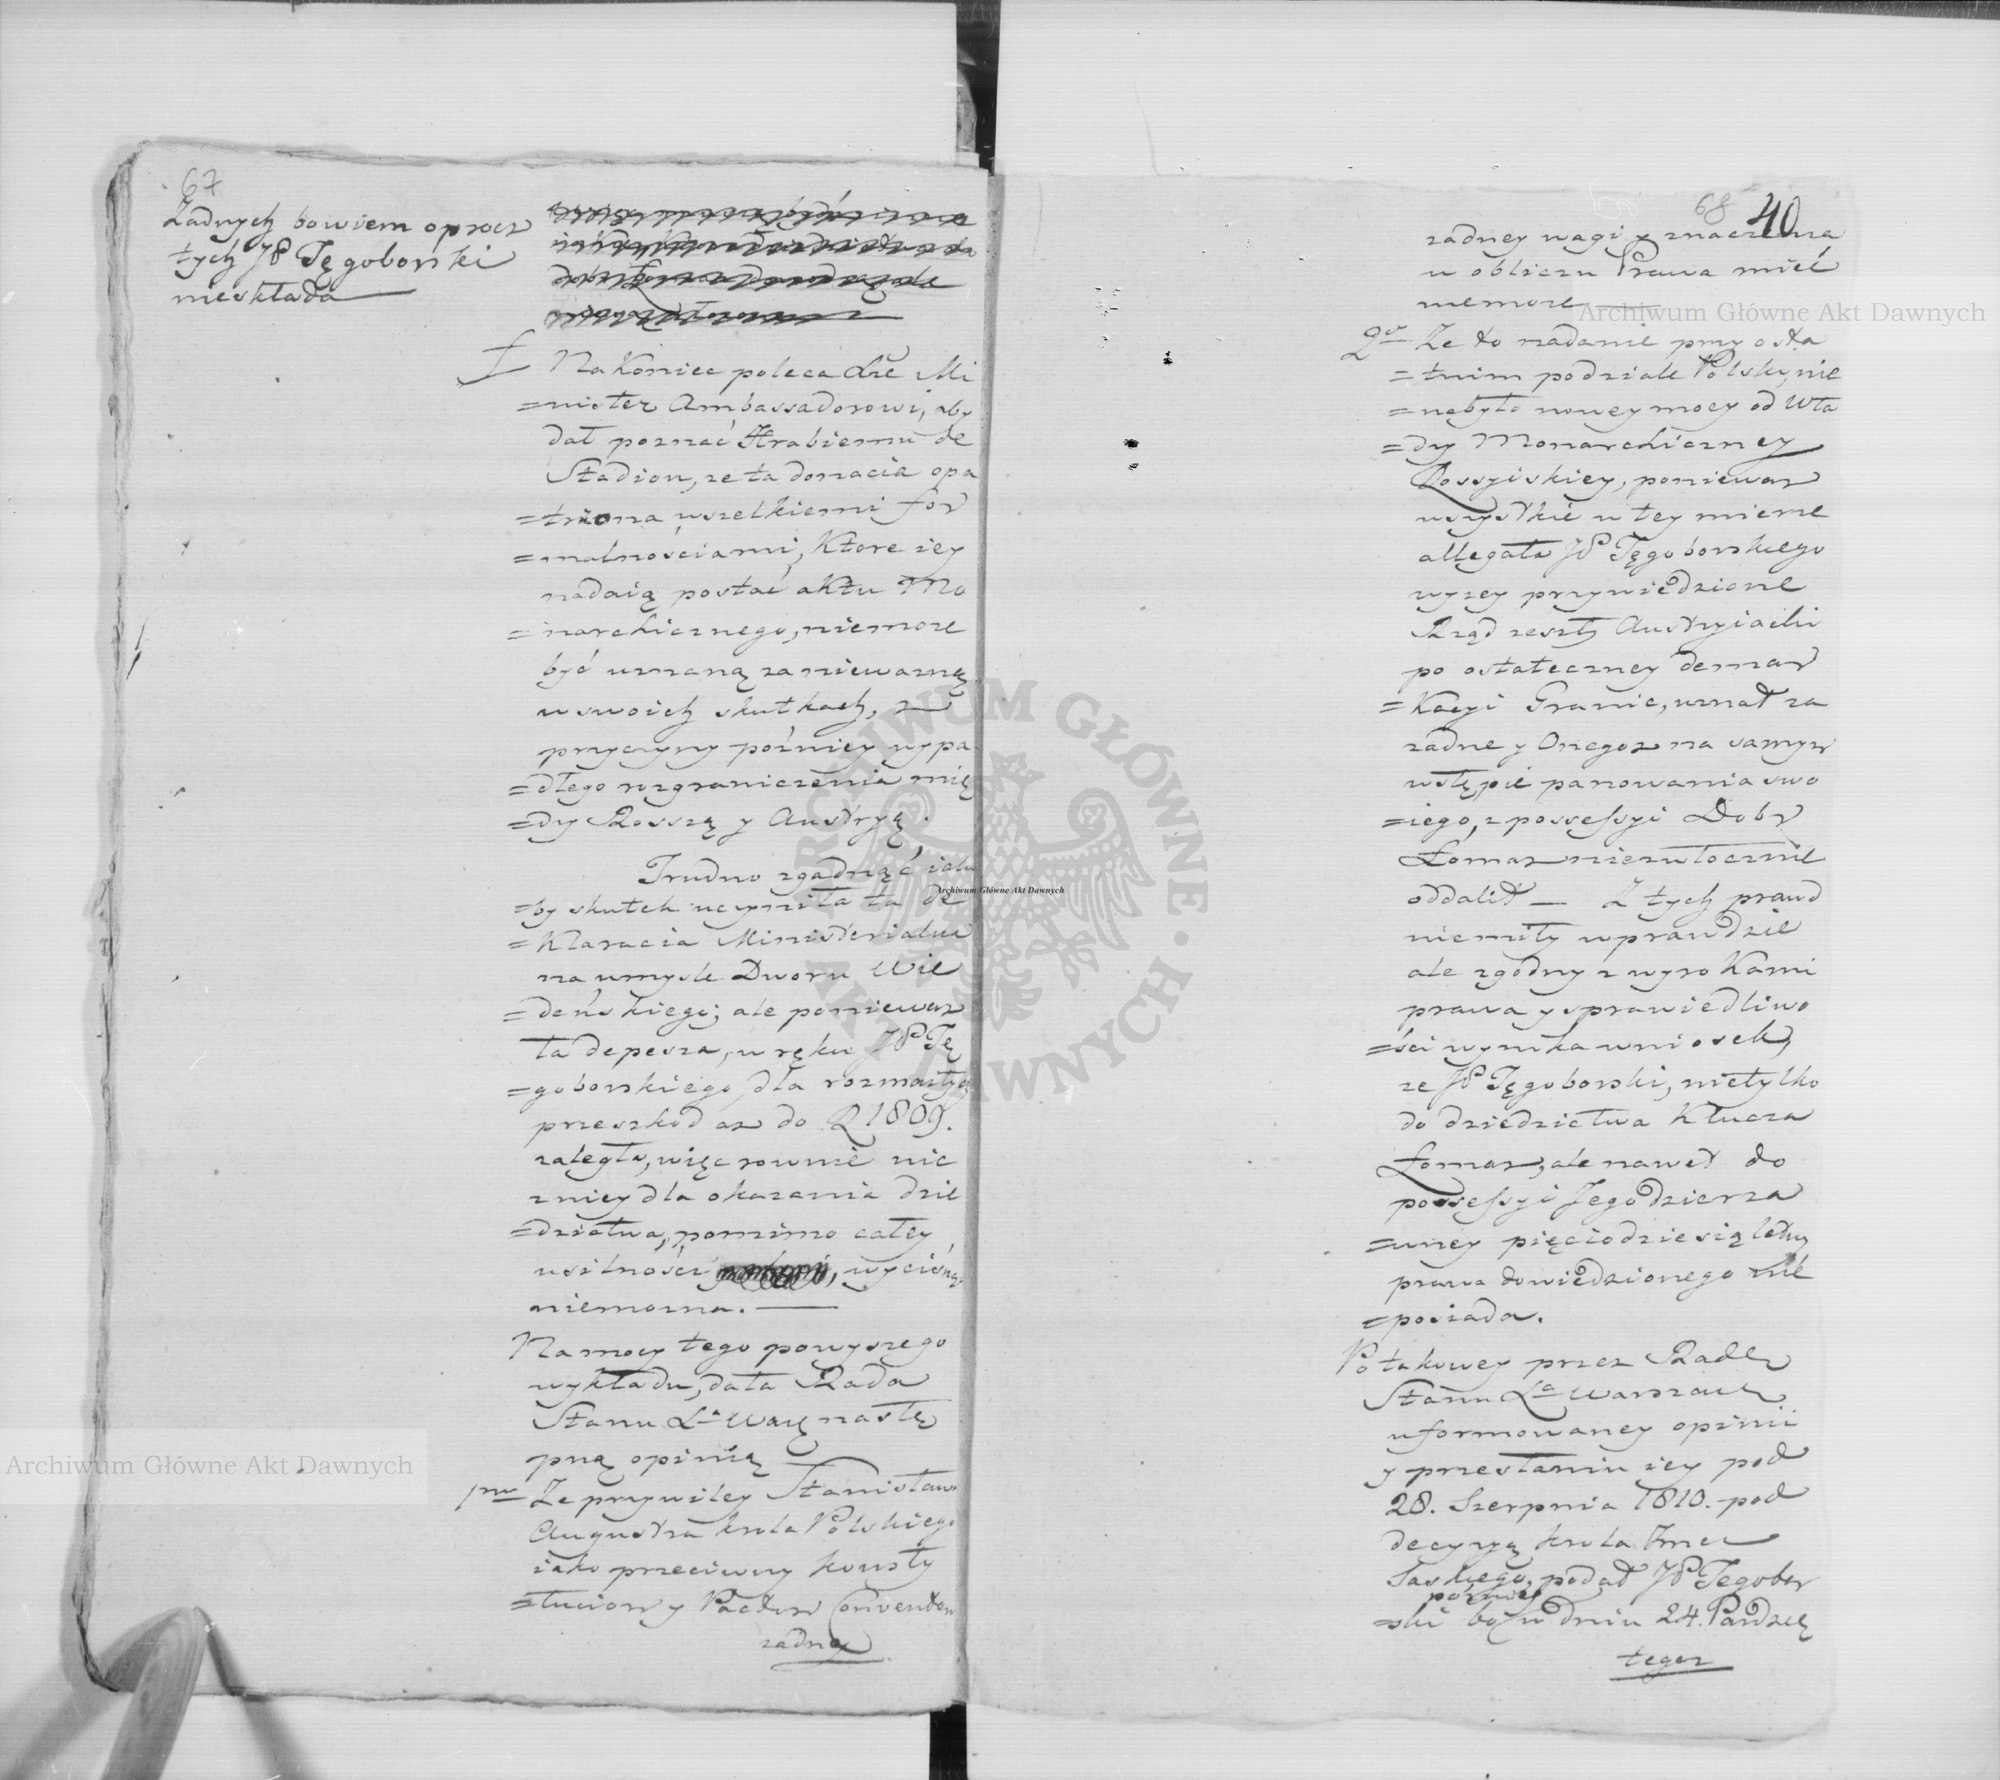 67
Żadnych bowiem oprocz
tych JP Tęgoborski
nieskłada
Nakoniec poleca dże Mi
=nister Ambassadorowi, aby
dał poznać Hrabiemu de
Stadion, ze ta donacia opa
=triona wszelkiemi for
=malnościami, Ktore iey
nadaią postać aktu Mo
=narchicznego, niemoze
być uznaną zaniewazną
w swoich skutkach, z
przyczyny poźniey wypa
=dłego rozgraniczenia mię
=dzy Rossyą y Austryą.
Trudno zgadnąć iaki
=by skutek uczyniła ta de
=klaracia Ministerialna
na umyśle Dworu Wie
=deńskiego; ale poniewaz
ta depesza, w ręku JP Tę
=goborskiego, dla rozmaitych
przeszkod az do R 1809.
zaległa, więc rownie nic
z niey dla okazania dzie
=dzictwa, pomimo całey
usilności, wycisnąć
niemozna.
Na mocy tego powyszego
wykładu, dała Rada
Stanu Xa Warę nastę
pną opinią
1mo Ze przywiley Stanisława
Augusta krola Polskiego
iako przeciwny konsty
=tucion y Pactow Conventom
zadney
68 40
zadney wagi y znaczenia
w obliczu Prawa mieć
niemoze
2o Ze to nadanie przy osta
=tnim podziale Polski, nie
=nabyło nowey mocy od Wła
=dzy Monarchiczney
Rossyiskiey, poniewaz
wszystkie w tey mierze
allegata JP Tęgoborskiego
wyzey przywiedzione
Rząd zeszły Austryiacki
po ostateczney demar
=kacyi Granic, uznał za
zadne y Onegoz na samym
wstępie panowania swo
=iego, z possessyi Dobr
Łomaz niezwłocznie
oddalił — Z tych prawd
niemiły wprawdzie
ale zgodny z wyrokami
prawa y sprawiedliwo
=ści wynika wniosek,
ze JP Tęgoborski, nietylko
do dziedzictwa Klucza
Łomaz, ale nawet do
possessyi Jego dzierza
=wney pięciodziesiąletny
prawa dowiedzionego nie
=posiada.
Po takowey przez Radę
Stanu Xa Warszaw
uformowaney opinii
y przesłaniu iey pod
28. Sierpnia 1810. pod
decyzyą krola Jmci
Saskiego, podał JP Tęgobor
poźniey
=ski w dniu 24. Pazdzie
tegoz
Archiwum Główne Akt Dawnych
Archiwum Główne Akt Dawnych
Archiwum Główne Akt Dawnych
ARCHIWUM GŁÓWNE AKT DAWNYCH